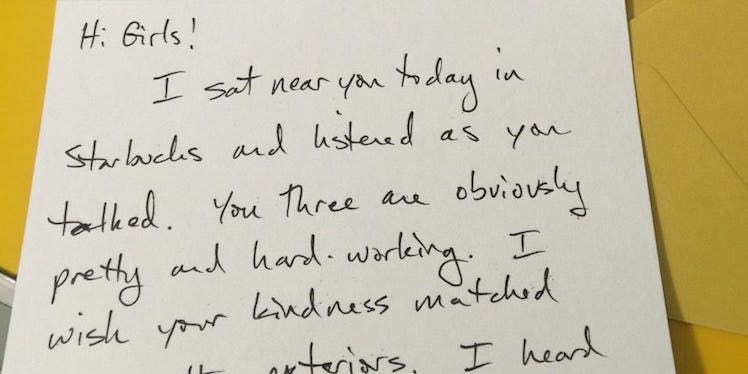 Hi Girls!
I sat near you today in
Starbucks and listened as you
talked. You three are obviously
pretty and hard-working. I
wish your kindness matched
exteriors. I heard